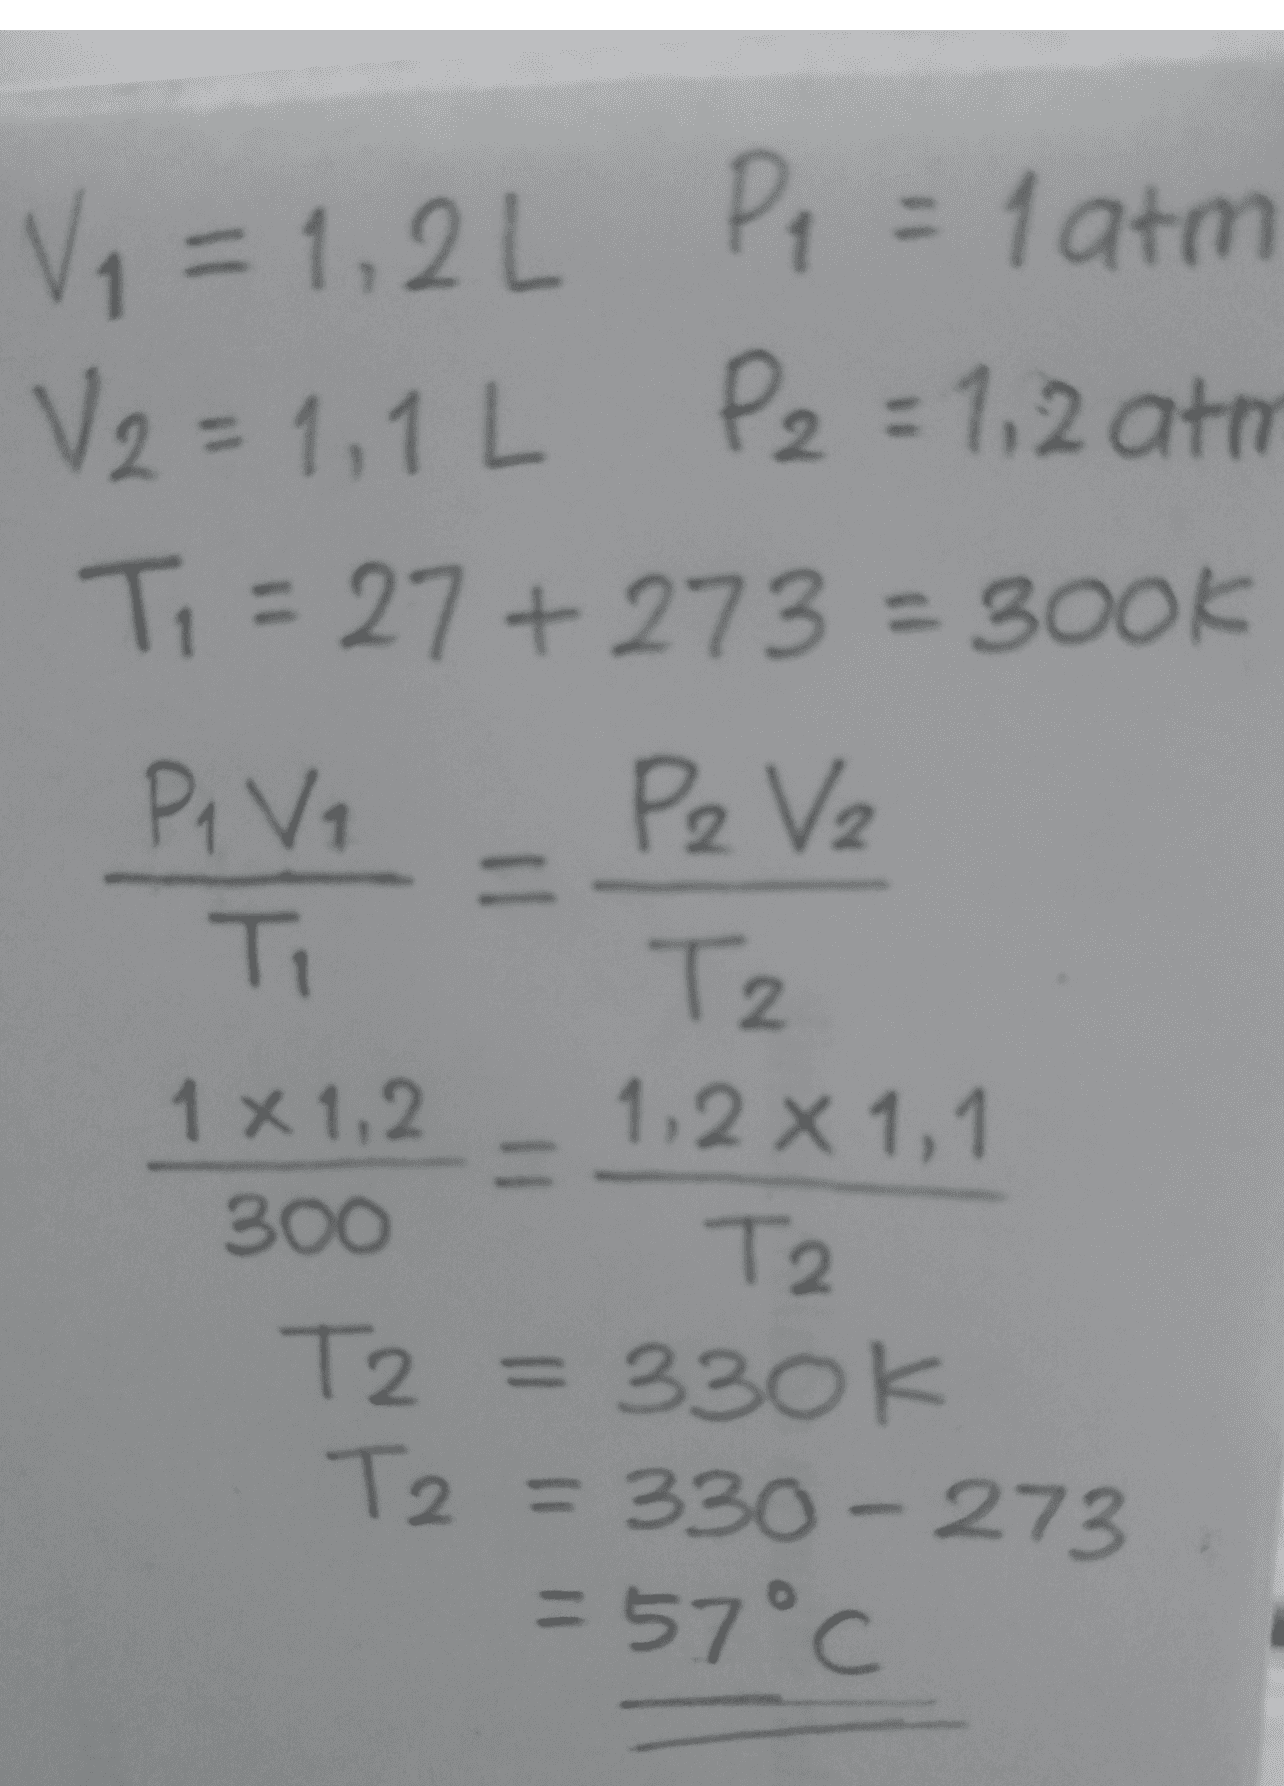 V₁ = 1,2 L P₁ = 1 atm
V₂ = 1,1 L P₂ = 1,2 atm
T₁ = 27 + 273 = 300K
P₁ V₁ / T₁ = P₂ V₂ / T₂
1 × 1,2 / 300 = 1,2 × 1,1 / T₂
T₂ = 330 K
T₂ = 330 - 273
= 57°C